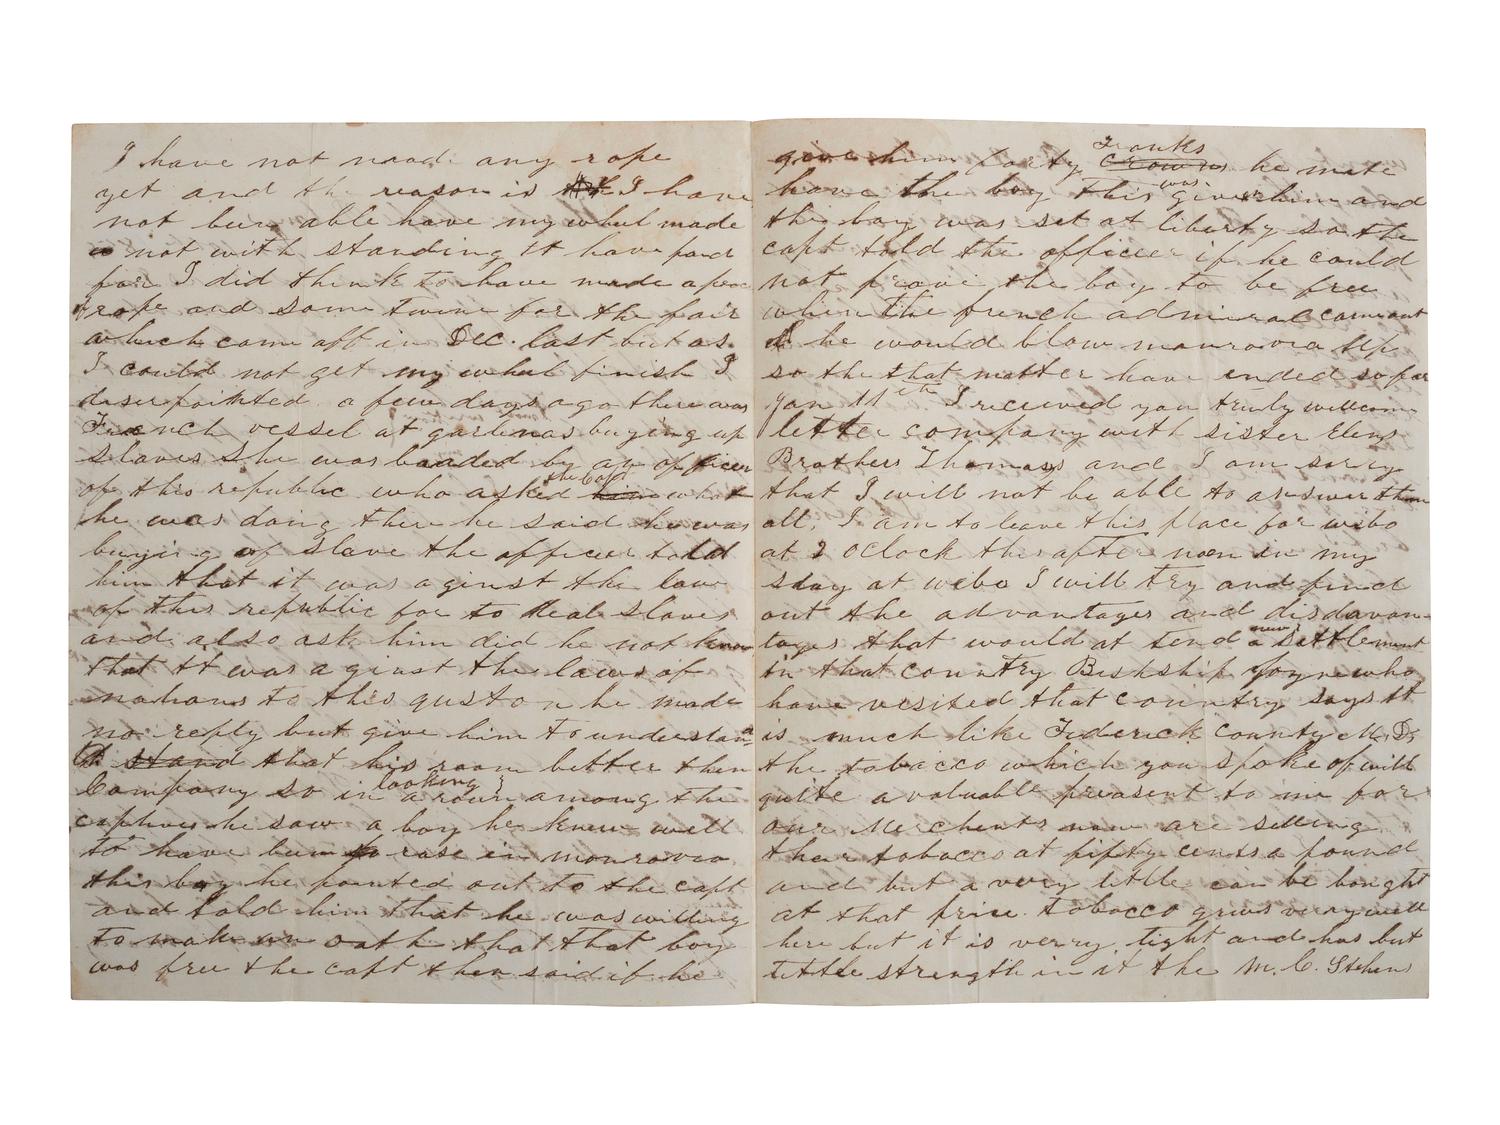 I have not made any rope
yet and the reason is I have
not been able have my wheel made
not with standing It have paid
for I did think to have made a peace
rope and some twine for the fair
which came off in Dec. last but as
I could not get my wheel finish I
disserpointed a few days ago there was
French vessel at garlenas buying up
slaves she was boaded by an officer
of this republic who asked the capt what
he was doing there he said he was
buying up slave the officer told
him that it was aginst the law
of this republic for to deal slaves
and also ask him did he not know
that It was aginst the laws of
nations to this quston he made
no reply but give him to understan
stand that his room better then
Company so in looking a roun among the
captives he saw a boy he knew well
to have been rase in monrovia
this boy he pointed out to the capt
and told him that he was willing
to make an oath that that boy
was free the capt then said if he
give him forty Franks Crowns he mite
have the boy this was given him and
the boy was set at liberty so the
capt told the officer if he could
not prove the boy to be free
when the french admiral came out
he would blow monrovia up
so the that matter have ended so far
Jan 11th I received you truly wellcom
letter company with sister Elens
Brothers Thomass and I am sorry
that I will not be able to answer them
all, I am to leave this place for
at 2 OClock this after noon in my
stay at I will try and find
out the advantages and disdavan-
tages that would at tend a new settlement
in that country Bishship who
have visited that country says It
is much like Frederick County M.D,
the tobacco which you spoke of will
quite a valuable preasent to me for
our Merchents now are selling
their tobacco at fifty cents a pound
and but a very little can be bought
at that price. tobacco grows very well
here but it is verry light and has but
little strength in it the M. C. Stevens